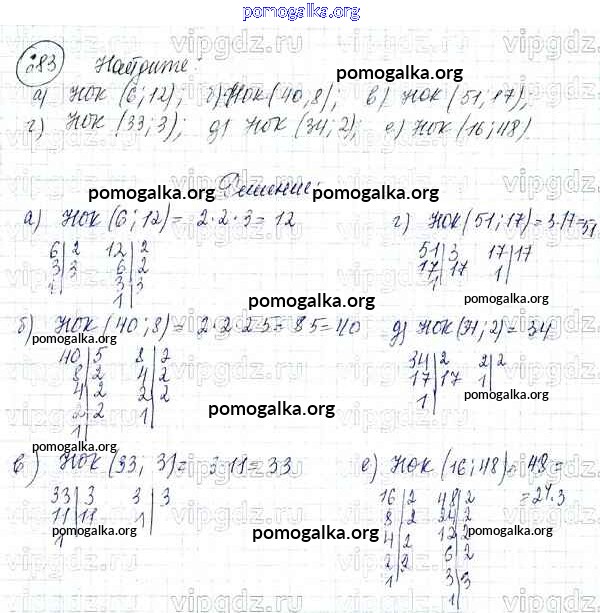 pomogalka.org
683 Найдите:
а) НОК (6; 12); б) НОК (40, 8); в) НОК (51, 17);
г) НОК (33; 3); д) НОК (34; 2); е) НОК (16; 48).
Решение:
а) НОК (6; 12) = 2·2·3 = 12
6|2 12|2
3|3 6|2
1| 3|3
1|
б) НОК (40; 8) = 2·2·2·5 = 8·5 = 40
40|5 8|2
8|2 4|2
4|2 2|2
2|2 1|
1|
в) НОК (33; 3) = 3·11 = 33
33|3 3|3
11|11 1|
г) НОК (51; 17) = 3·17 = 51
51|3 17|17
17|17 1|
1|
д) НОК (34; 2) = 34
34|2 2|2
17|17 1|
1|
е) НОК (16; 48) = 48 =
= 2⁴·3
16|2 48|2
8|2 24|2
4|2 12|2
2|2 6|2
1| 3|3
1|